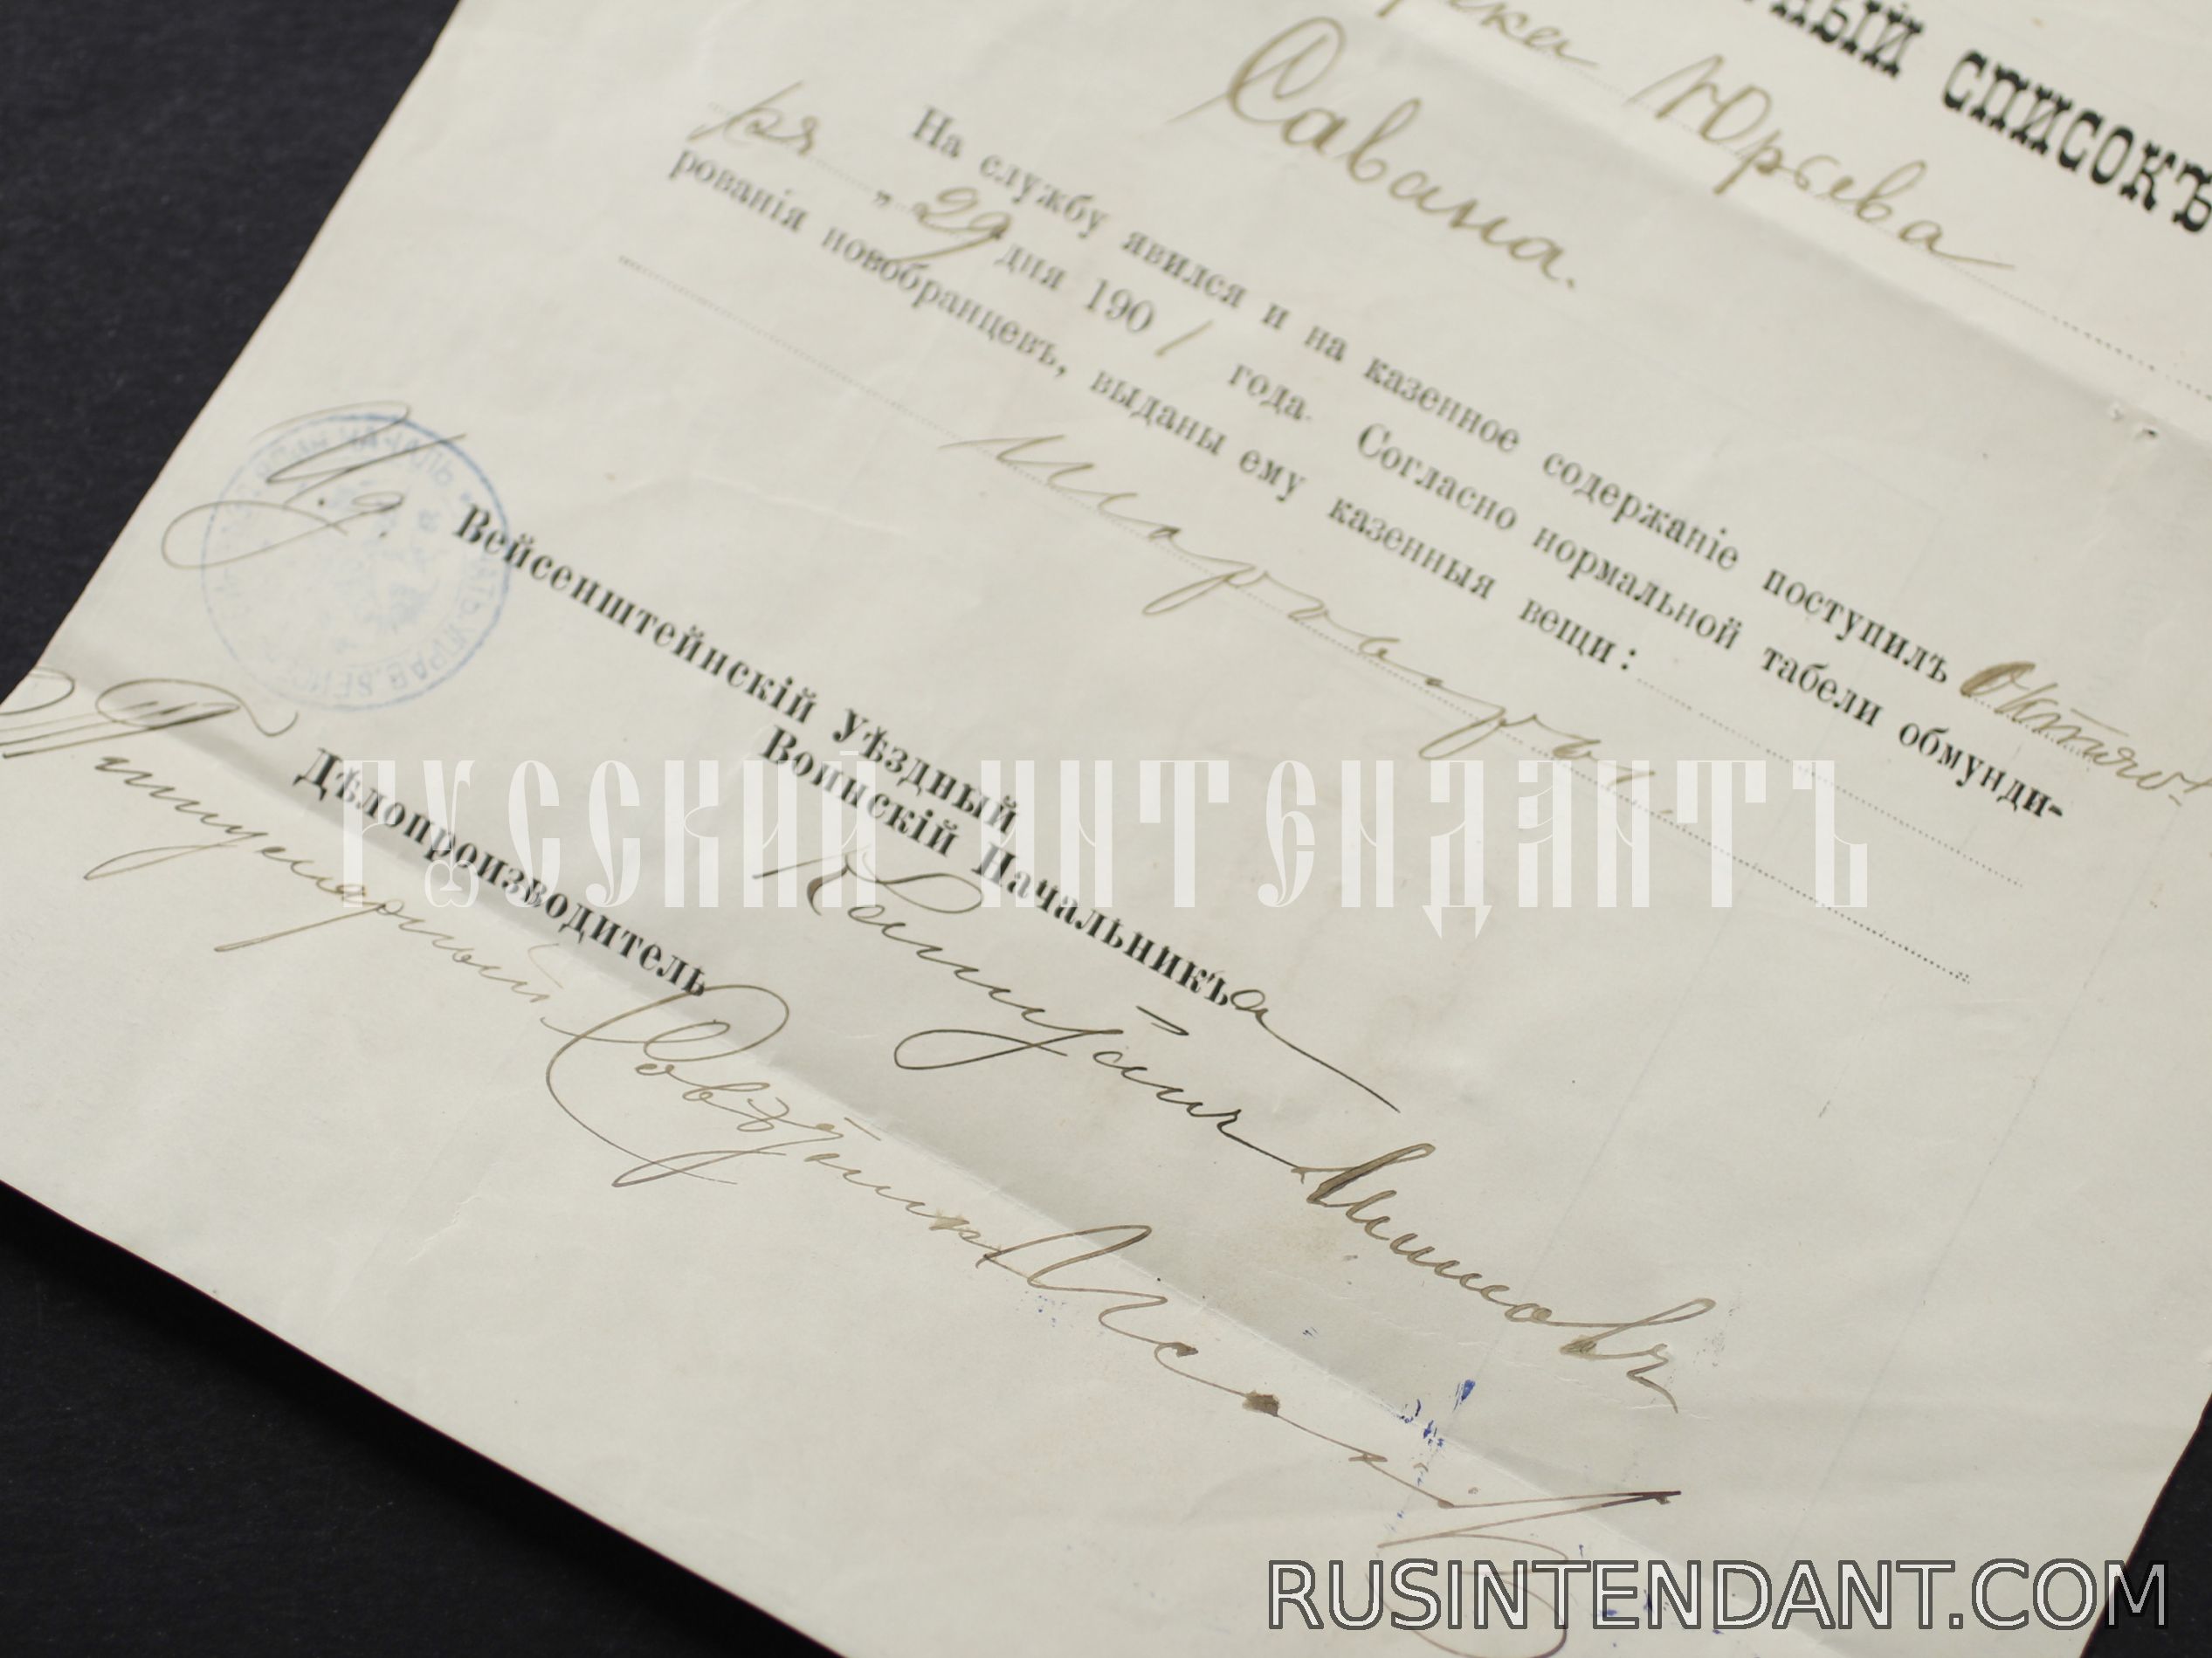 ный списокъ
ка Юрьева
Савана.
На службу явился и на казенное содержаніе поступилъ Октяб-
ря „29 дня 1901 года. Согласно нормальной табели обмунди-
рованія новобранцевъ, выданы ему казенныя вещи:
шаровары
И.д. Вейсенштейнскій Уѣздный
Воинскій Начальникъа
Капитанъ
Дѣлопроизводитель
Титулярный Совѣтникъ
РУССКИЙ ИНТЕНДАНТЪ
RUSINTENDANT.COM